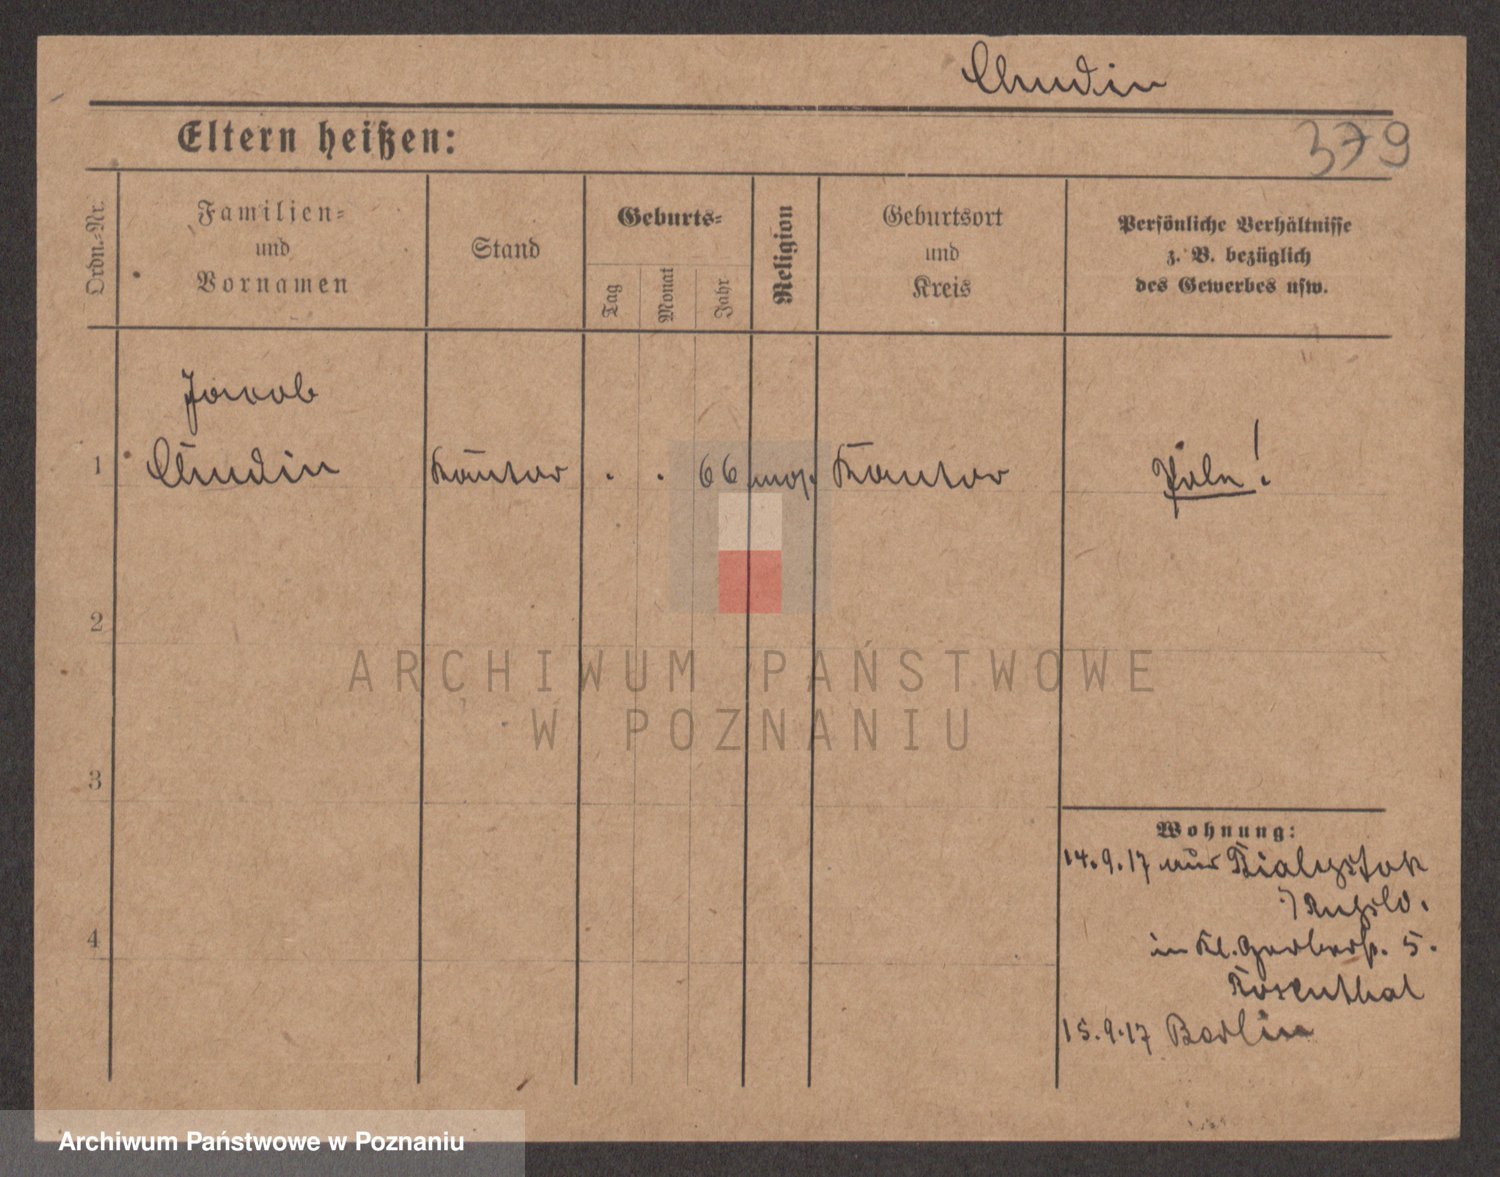 Chudin
379
Eltern heißen:
Ordn.-Nr.
Familien-
und
Vornamen
Stand
Geburts-
Tag
Monat
Jahr
Religion
Geburtsort
und
Kreis
Persönliche Verhältnisse
z. B. bezüglich
des Gewerbes usw.
Jacob
1 Chudin Kantor . . 66 mos. Kantor Pole!
2
3
4
Wohnung:
14.9.17 aus Bialystok
Rußld.
in Kl. Gerberst. 5.
Rosenthal
15.9.17 Berlin
ARCHIWUM PAŃSTWOWE
W POZNANIU
Archiwum Państwowe w Poznaniu